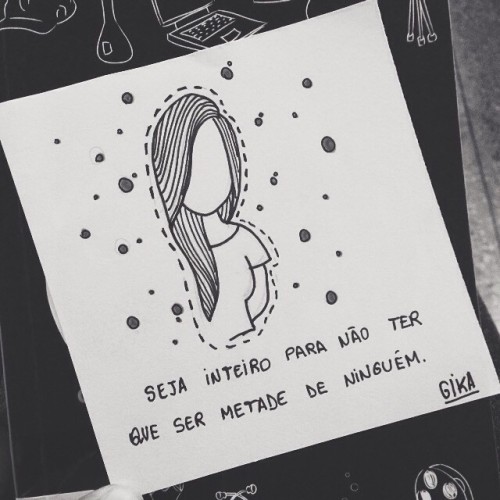 SEJA iNTEiRO PARA NÃO TER
QUE SER METADE DE NiNGUÉM.
GiKA